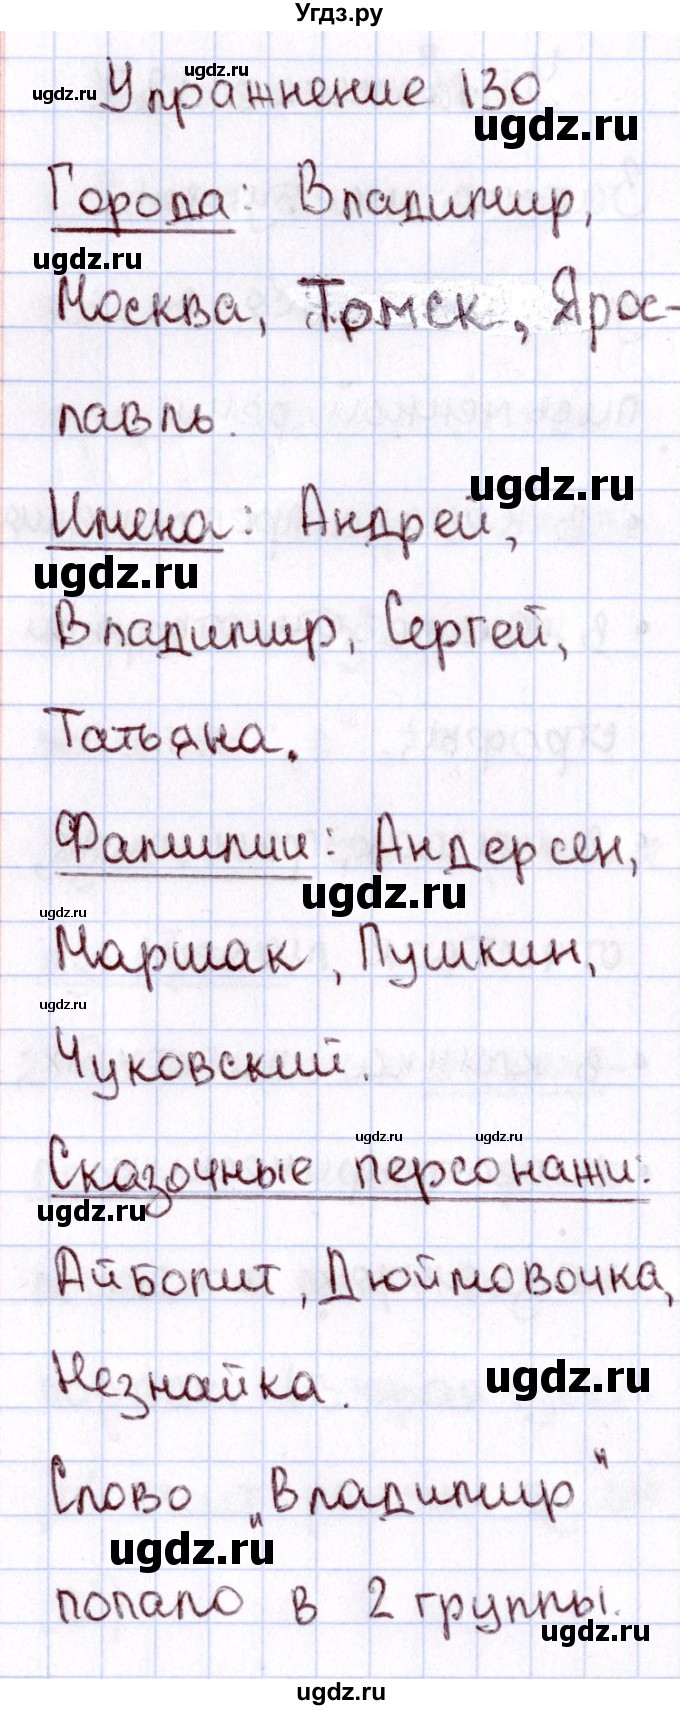 Угдз.ру
ugdz.ru
ugdz.ru
Упражнение 130
ugdz.ru
Города: Владимир,
ugdz.ru
Москва, Томск, Ярос-
лавль.
ugdz.ru
Имена: Андрей,
ugdz.ru
Владимир, Сергей,
Татьяна.
Фамилии: Андерсен,
ugdz.ru
ugdz.ru
Маршак, Пушкин,
ugdz.ru
Чуковский.
ugdz.ru
ugdz.ru
Сказочные персонажи:
ugdz.ru
Айболит, Дюймовочка,
Незнайка.
ugdz.ru
Слово „Владимир"
ugdz.ru
попало в 2 группы.
ugdz.ru
ugdz.ru